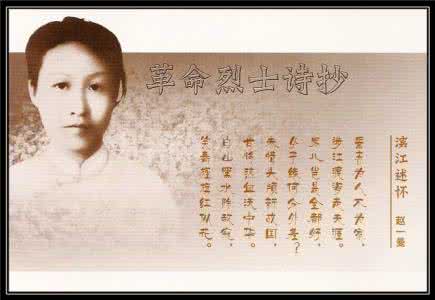 革命烈士诗抄
滨江述怀
赵一曼
誓志为人不为家，
涉江渡海走天涯。
男儿岂是全都好，
女子缘何分外差？
未惜头颅新故国，
甘将热血沃中华。
白山黑水除敌寇，
笑看旌旗红似花。